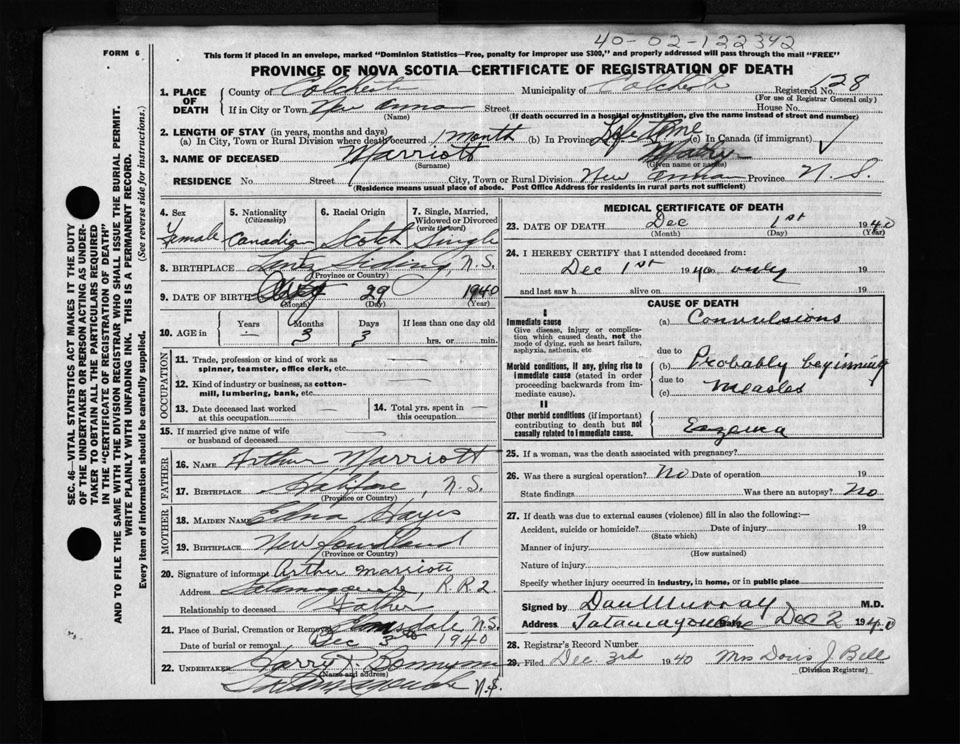 40-02-122392
FORM 6
This form if placed in an envelope, marked "Dominion Statistics—Free, penalty for improper use $300," and properly addressed will pass through the mail "FREE"
PROVINCE OF NOVA SCOTIA—CERTIFICATE OF REGISTRATION OF DEATH
SEC. 46—VITAL STATISTICS ACT MAKES IT THE DUTY
OF THE UNDERTAKER OR PERSON ACTING AS UNDER-
TAKER TO OBTAIN ALL THE PARTICULARS REQUIRED
IN THE "CERTIFICATE OF REGISTRATION OF DEATH"
AND TO FILE THE SAME WITH THE DIVISION REGISTRAR WHO SHALL ISSUE THE BURIAL PERMIT.
WRITE PLAINLY WITH UNFADING INK. THIS IS A PERMANENT RECORD.
Every item of information should be carefully supplied. (See reverse side for instructions.)
1. PLACE OF DEATH County of Colchester Municipality of Colchester Registered No. 128
(For use of Registrar General only)
If in City or Town New Annan Street House No.
(Name) (If death occurred in a hospital or institution, give the name instead of street and number)
2. LENGTH OF STAY (in years, months and days)
(a) In City, Town or Rural Division where death occurred 1 month (b) In Province Life time (c) In Canada (if immigrant) ✓
3. NAME OF DECEASED Marriott Mary
(Surname) (Given name or names)
RESIDENCE No Street City, Town or Rural Division New Annan Province N.S.
(Residence means usual place of abode. Post Office Address for residents in rural parts not sufficient)
4. Sex Female
5. Nationality (Citizenship) Canadian
6. Racial Origin Scotch
7. Single, Married, Widowed or Divorced (write the word) Single
8. BIRTHPLACE N.S.
(Province or Country)
9. DATE OF BIRTH Aug 29 1940
(Month) (Day) (Year)
10. AGE in Years — Months 3 Days 3 If less than one day old
hrs. or min.
OCCUPATION
11. Trade, profession or kind of work as spinner, teamster, office clerk, etc. —
12. Kind of industry or business, as cotton-mill, lumbering, bank, etc. —
13. Date deceased last worked at this occupation —
14. Total yrs. spent in this occupation —
15. If married give name of wife or husband of deceased —
FATHER
16. NAME Arthur Marriott
17. BIRTHPLACE Halifax, N.S.
(Province or Country)
MOTHER
18. MAIDEN NAME Edna Hayes
19. BIRTHPLACE Newfoundland
(Province or Country)
20. Signature of informant Arther Marriott
Address R.R.2
Relationship to deceased Father
21. Place of Burial, Cremation or Removal N.S.
Date of burial or removal Dec 3rd 1940
22. UNDERTAKER Harry
(Name and address)
Tatamagouche N.S.
MEDICAL CERTIFICATE OF DEATH
23. DATE OF DEATH Dec 1st 1940
(Month) (Day) (Year)
24. I HEREBY CERTIFY that I attended deceased from:
Dec 1st 1940 only 19
and last saw h alive on 19
CAUSE OF DEATH
I
Immediate cause
Give disease, injury or complication which caused death, not the mode of dying, such as heart failure, asphyxia, asthenia, etc
(a) Convulsions
due to
Morbid conditions, if any, giving rise to immediate cause (stated in order proceeding backwards from immediate cause).
(b) Probably beginning
due to
(c) Measles
II
Other morbid conditions (if important) contributing to death but not causally related to immediate cause.
Eczema
25. If a woman, was the death associated with pregnancy?
26. Was there a surgical operation? No Date of operation 19
State findings Was there an autopsy? No
27. If death was due to external causes (violence) fill in also the following:—
Accident, suicide or homicide? Date of injury 19
(State which)
Manner of injury
(How sustained)
Nature of injury
Specify whether injury occurred in industry, in home, or in public place
Signed by Dan Murray M.D.
Address Tatamagouche Date Dec 2 1940
28. Registrar's Record Number
29. Filed Dec 3rd 1940 Mrs Doris J Bell
(Division Registrar)